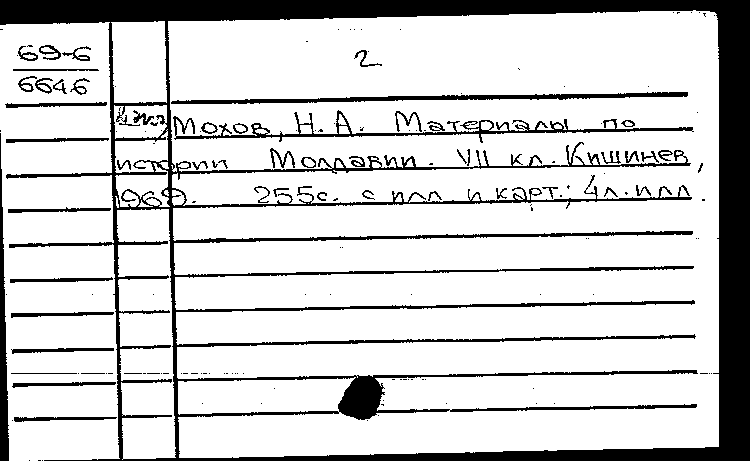 69-6
6646
2
Мохов, Н. А. Материалы по
истории Молдавии. VII кл. Кишинев,
1969. 255с. с илл. и карт.; 4л. илл.